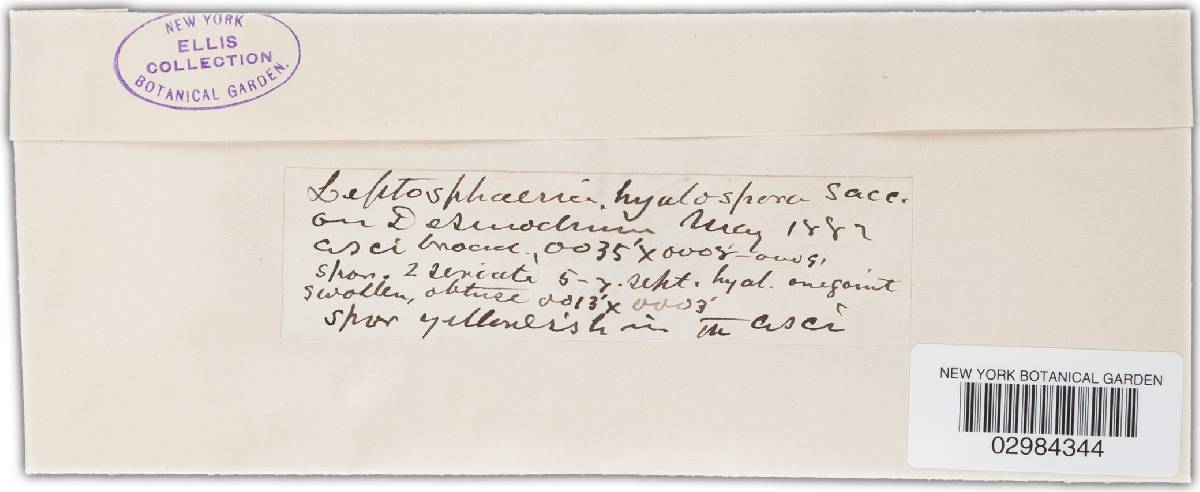 NEW YORK
ELLIS
COLLECTION
BOTANICAL GARDEN.
Leptosphaeria, hyalospora Sacc.
on Desmodium May 1882
asci broad, 0035'x0008-0009,
spor. 2 seriate 5-7. sept. hyal. one joint
swollen, obtuse 0013'x 0003'
spor yellowish in asci
NEW YORK BOTANICAL GARDEN
02984344